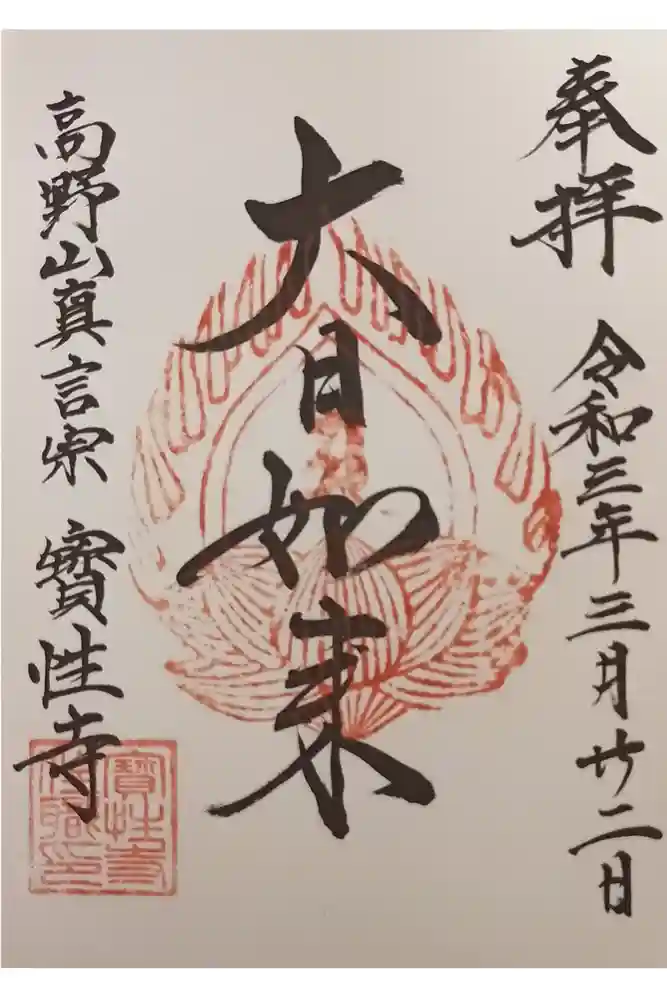 奉拝 令和三年三月廿二日
大日如来
高野山真言宗 寳性寺
寳性寺
住職之印